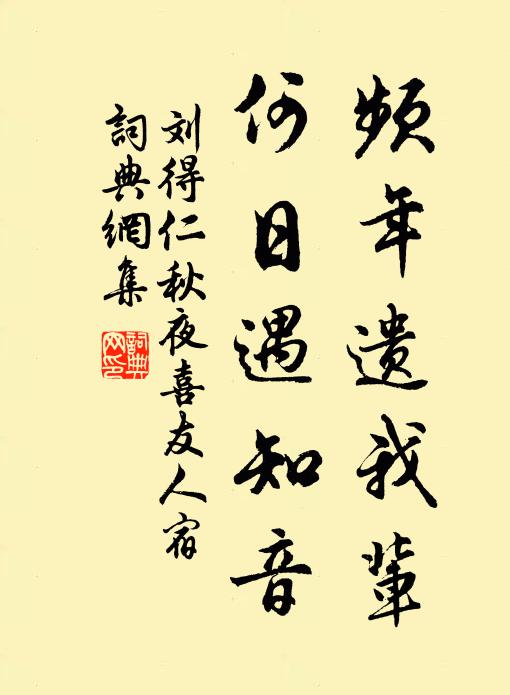 频年遗我辈
何日遇知音
刘得仁秋夜喜友人宿
詞典網集
詞典网印